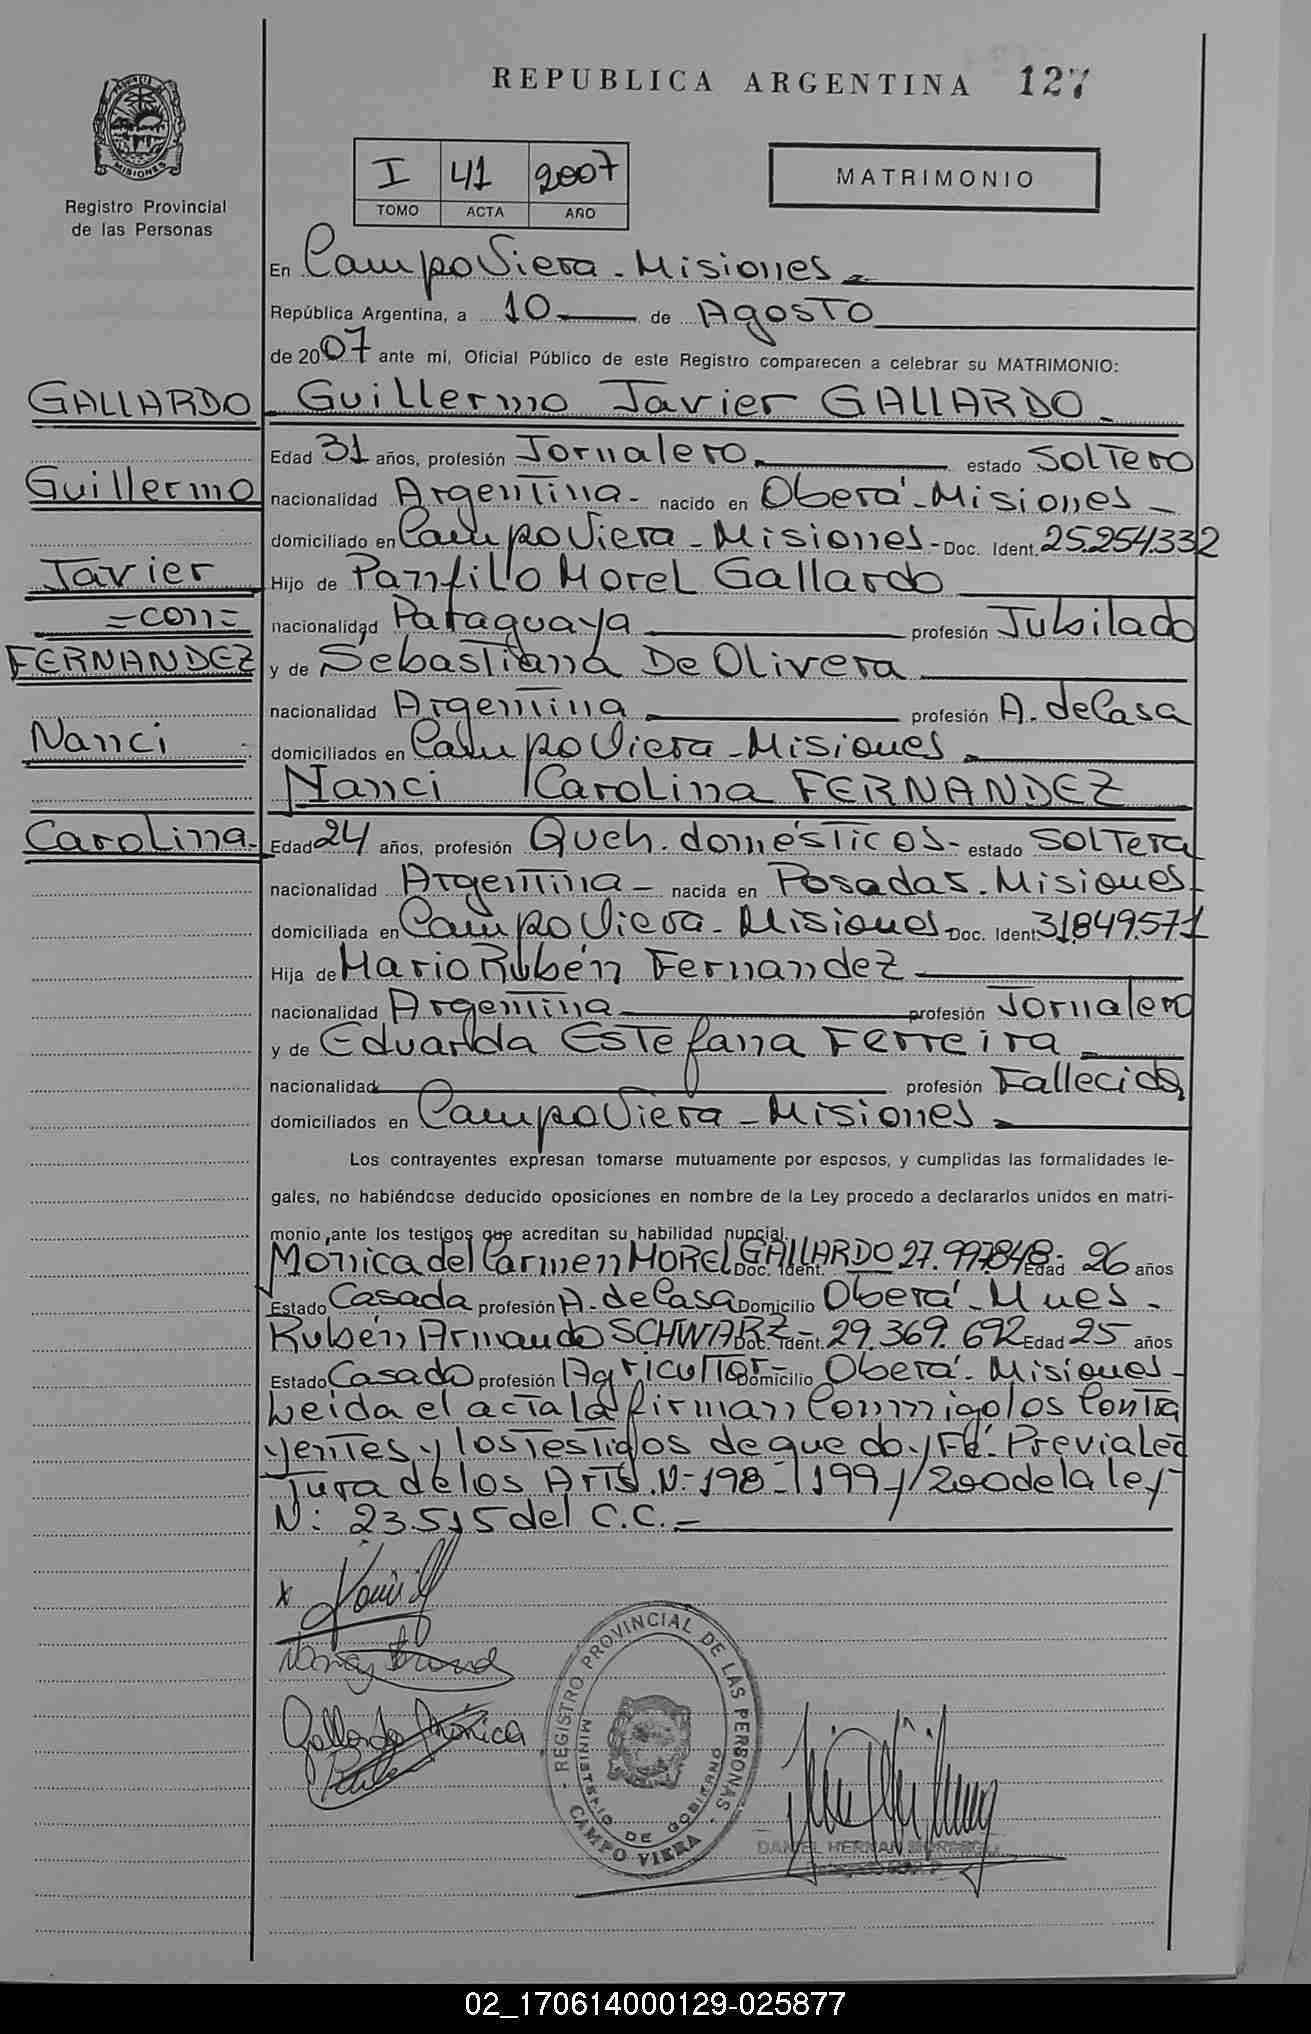 REPUBLICA ARGENTINA 127
MISIONES
Registro Provincial
de las Personas
I 41 2007
TOMO ACTA AÑO
MATRIMONIO
En Campo Viera - Misiones
República Argentina, a 10 de Agosto
de 2007 ante mi, Oficial Público de este Registro comparecen a celebrar su MATRIMONIO:
GALLARDO
Guillermo
Javier
=con=
FERNANDEZ
Nanci
Carolina-
Guillermo Javier GALLARDO-
Edad 31 años, profesión Jornalero estado Soltero
nacionalidad Argentina- nacido en Oberá-Misiones-
domiciliado en Campo Viera - Misiones- Doc. Ident. 25.254.332
Hijo de Panfilo Morel Gallardo
nacionalidad Paraguaya profesión Jubilado
y de Sebastiana De Olivera
nacionalidad Argentina profesión A. de Casa
domiciliados en Campo Viera - Misiones
Nanci Carolina FERNANDEZ
Edad 24 años, profesión Queh. domésticos- estado Soltera
nacionalidad Argentina- nacida en Posadas. Misiones-
domiciliada en Campo Viera - Misiones Doc. Ident. 31.849.571
Hija de Mario Rubén Fernandez
nacionalidad Argentina profesión Jornalero
y de Eduarda Estefana Ferreira
nacionalidad profesión Fallecida
domiciliados en Campo Viera - Misiones
Los contrayentes expresan tomarse mutuamente por esposos, y cumplidas las formalidades le-
gales, no habiéndose deducido oposiciones en nombre de la Ley procedo a declararlos unidos en matri-
monio, ante los testigos que acreditan su habilidad nupcial.
Mónica del Carmen MOREL GALLARDO Doc. Ident. 27.997.848- Edad 26 años
Estado Casada profesión A. de Casa Domicilio Oberá - Mnes-
Rubén Armando SCHWARZ- Doc. Ident. 29.369.692 Edad 25 años
Estado Casado profesión Agricultor- Domicilio Oberá. Misiones-
Leida el acta la firman Conmigo los Contra
yentes y los Testigos de que doy Fé. Previa lec
tura de los Arts. N- 198-/199-/200 de la ley
N: 23.515 del C.C.-
x
Gallardo Mónica
REGISTRO PROVINCIAL DE LAS PERSONAS
MINISTERIO DE GOBIERNO
CAMPO VIERA
DANIEL HERNAN
02_170614000129-025877